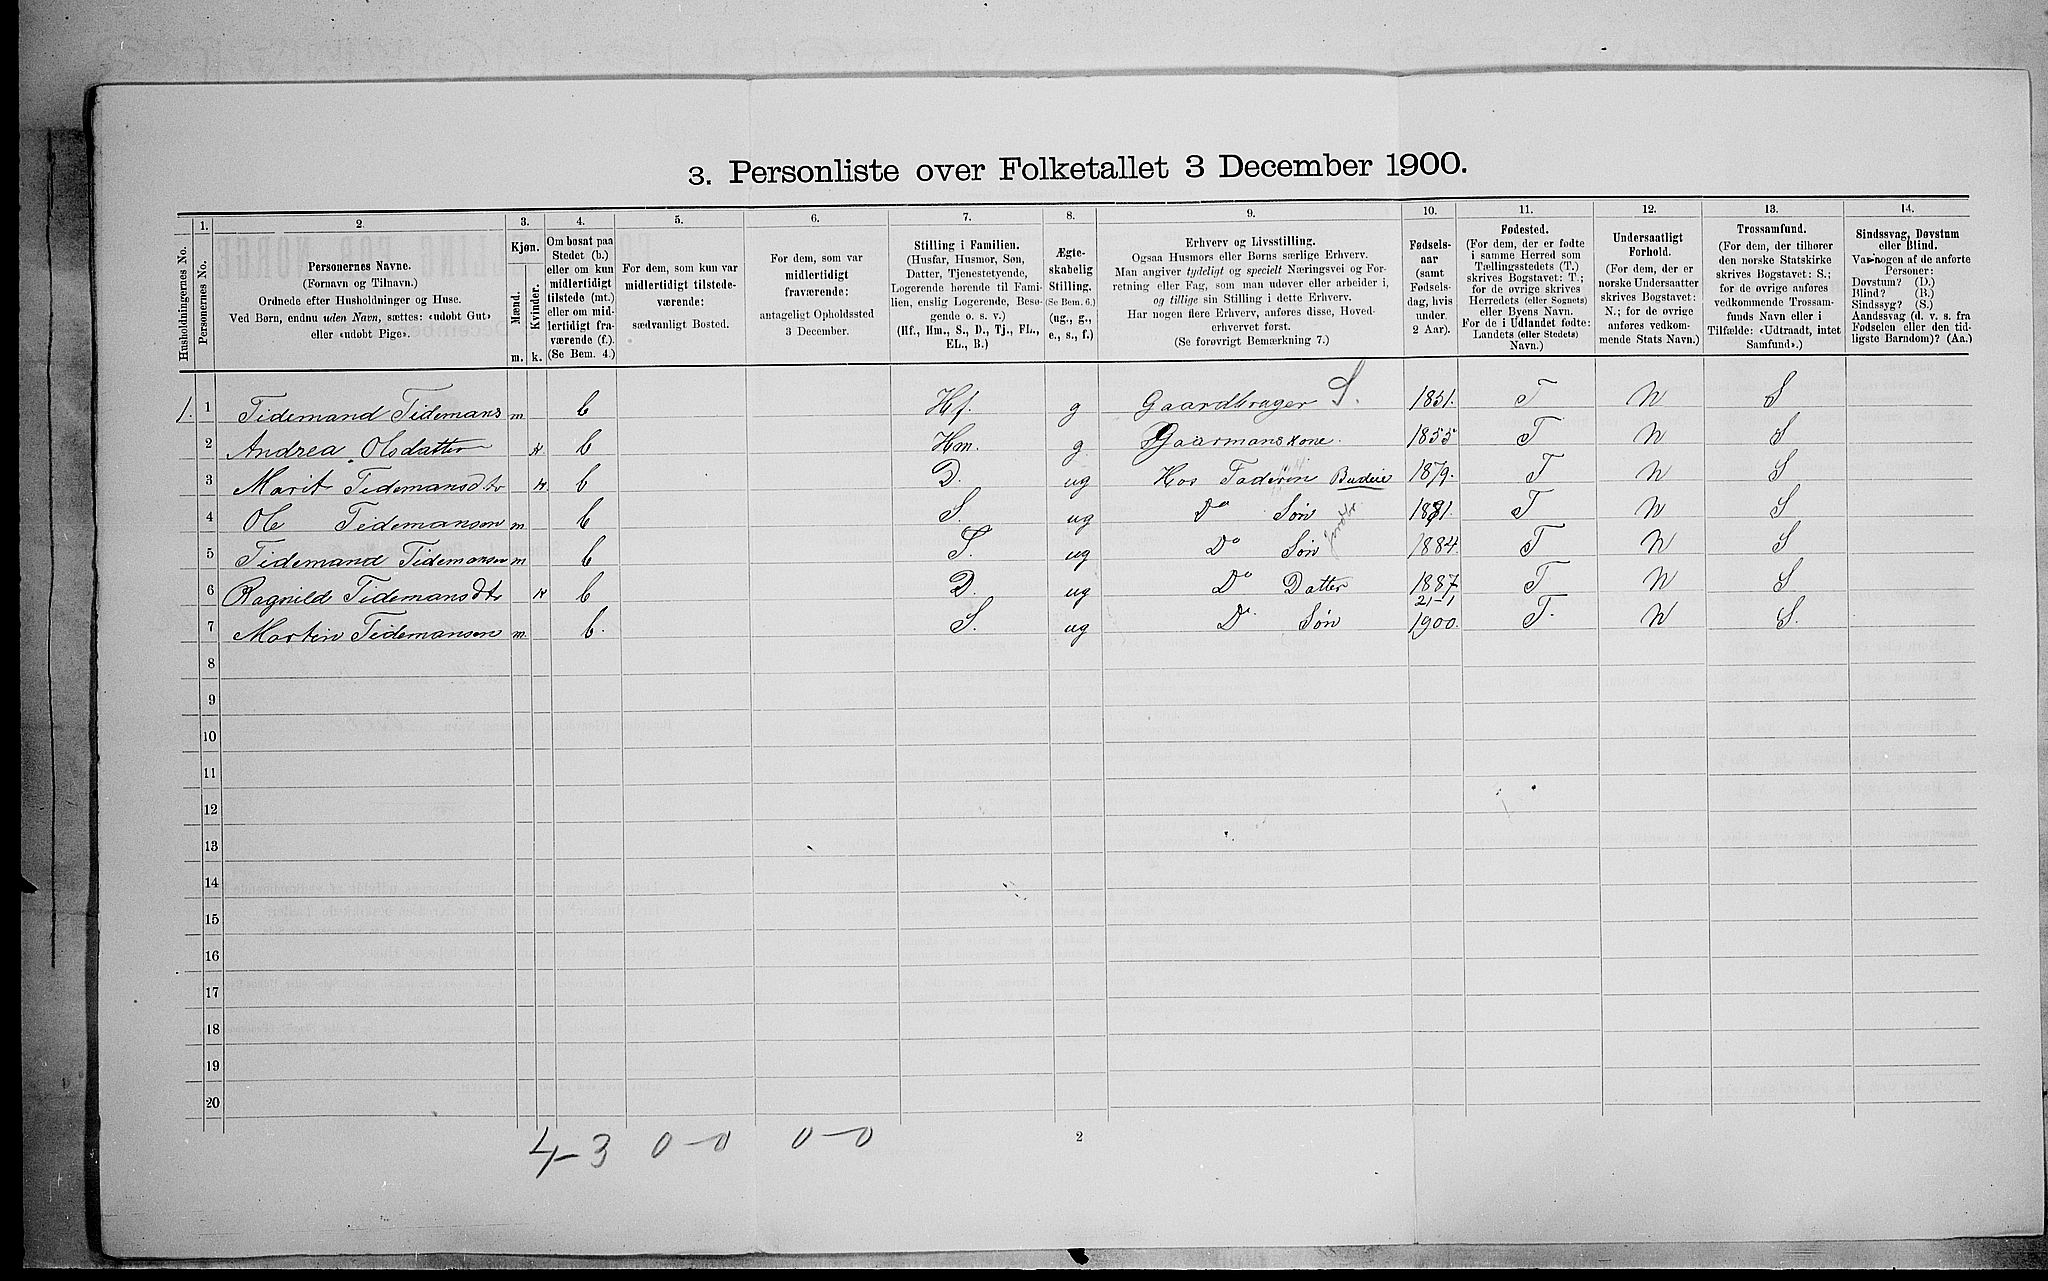 3. Personliste over Folketallet 3 December 1900.
1. 2. 3. 4. 5. 6. 7. 8. 9. 10. 11. 12. 13. 14.
Husholdningernes No.
Personernes No.
Personernes Navne.
(Fornavn og Tilnavn.)
Ordnede efter Husholdninger og Huse.
Ved Børn, endnu uden Navn, sættes: «udobt Gut»
eller «udobt Pige».
Kjøn.
Mænd.
Kvinder.
m. k.
Om bosat paa
Stedet (b.)
eller om kun
midlertidigt
tilstede (mt.)
eller om mid-
lertidigt fra-
værende (f.).
(Se Bem. 4.)
For dem, som kun var
midlertidigt tilstede-
værende:
sædvanligt Bosted.
For dem, som var
midlertidigt
fraværende:
antageligt Opholdssted
3 December.
Stilling i Familien.
(Husfar, Husmor, Søn,
Datter, Tjenestetyende,
Logerende hørende til Fami-
lien, enslig Logerende, Besø-
gende o. s. v.)
(Hf., Hm., S., D., Tj., FL.,
EL., B.)
Ægte-
skabelig
Stilling.
(Se Bem. 6.)
(ug., g.,
e., s., f.)
Erhverv og Livsstilling.
Ogsaa Husmors eller Børns særlige Erhverv.
Man angiver tydeligt og specielt Næringsvei og For-
retning eller Fag, som man udøver eller arbeider i,
og tillige sin Stilling i dette Erhverv.
Har nogen flere Erhverv, anføres disse, Hoved-
erhvervet først.
(Se forøvrigt Bemærkning 7.)
Fødsels-
aar
(samt
Fødsels-
dag, hvis
under
2 Aar).
Fødested.
(For dem, der er fødte
i samme Herred som
Tællingsstedets (T.)
skrives Bogstavet: T.;
for de øvrige skrives
Herredets (eller Sognets)
eller Byens Navn.
For de i Udlandet fødte:
Landets (eller Stedets)
Navn.)
Undersaatligt
Forhold.
(For dem, der er
norske Undersaatter
skrives Bogstavet:
N.; for de øvrige
anføres vedkom-
mende Stats Navn.)
Trossamfund.
(For dem, der tilhører
den norske Statskirke
skrives Bogstavet: S.;
for de øvrige anføres
vedkommende Trossam-
funds Navn eller i
Tilfælde: «Udtraadt, intet
Samfund».)
Sindssvag, Døvstum
eller Blind.
Var nogen af de anførte
Personer:
Døvstum? (D.)
Blind? (B.)
Sindssyg? (S.)
Aandssvag (d. v. s. fra
Fødselen eller den tid-
ligste Barndom)? (Aa.)
1. 1 Tidemand Tidemans m b Hf. g Gaardbruger S. 1851. T N S
2 Andrea Olsdatter k b Hm. g Gaarmanskone. 1855 T N S
3 Marit Tidemansdtr k b D. ug Hos Faderen Budeie 1879. T N S
4 Ole Tidemansen m b S. ug Do Søn 1881. T N S
5 Tidemand Tidemansen m b S. ug Do Søn Jordbr. 1884. T N S
6 Ragnild Tidemansdtr k b D. ug Do Datter 1887. T N S
21-1
7 Martin Tidemansen m. b. S. ug Do. Søn 1900. T. N S.
8
9
10
11
12
13
14
15
16
17
18
19
20
4-3 0-0 0-0
2